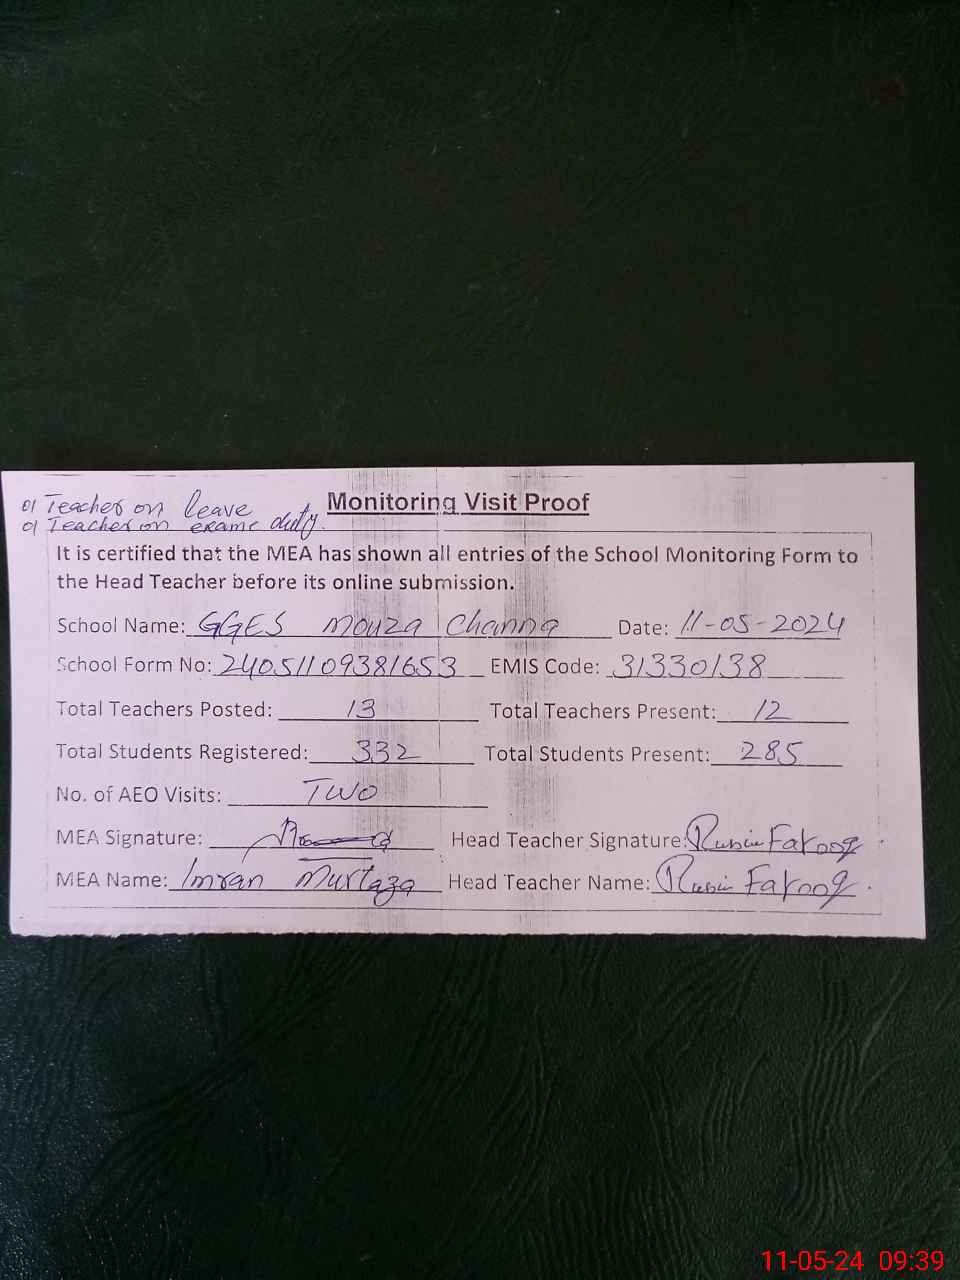 01 Teacher on leave
01 Teacher on exame duty.
Monitoring Visit Proof
It is certified that the MEA has shown all entries of the School Monitoring Form to
the Head Teacher before its online submission.
School Name: GGES Mouza Channa Date: 11-05-2024
School Form No: 24051109381653 EMIS Code: 31330138
Total Teachers Posted: 13 Total Teachers Present: 12
Total Students Registered: 332 Total Students Present: 285
No. of AEO Visits: Two
MEA Signature: Head Teacher Signature: Farooq
MEA Name: Imran Murtaza Head Teacher Name: Farooq.
11-05-24 09:39